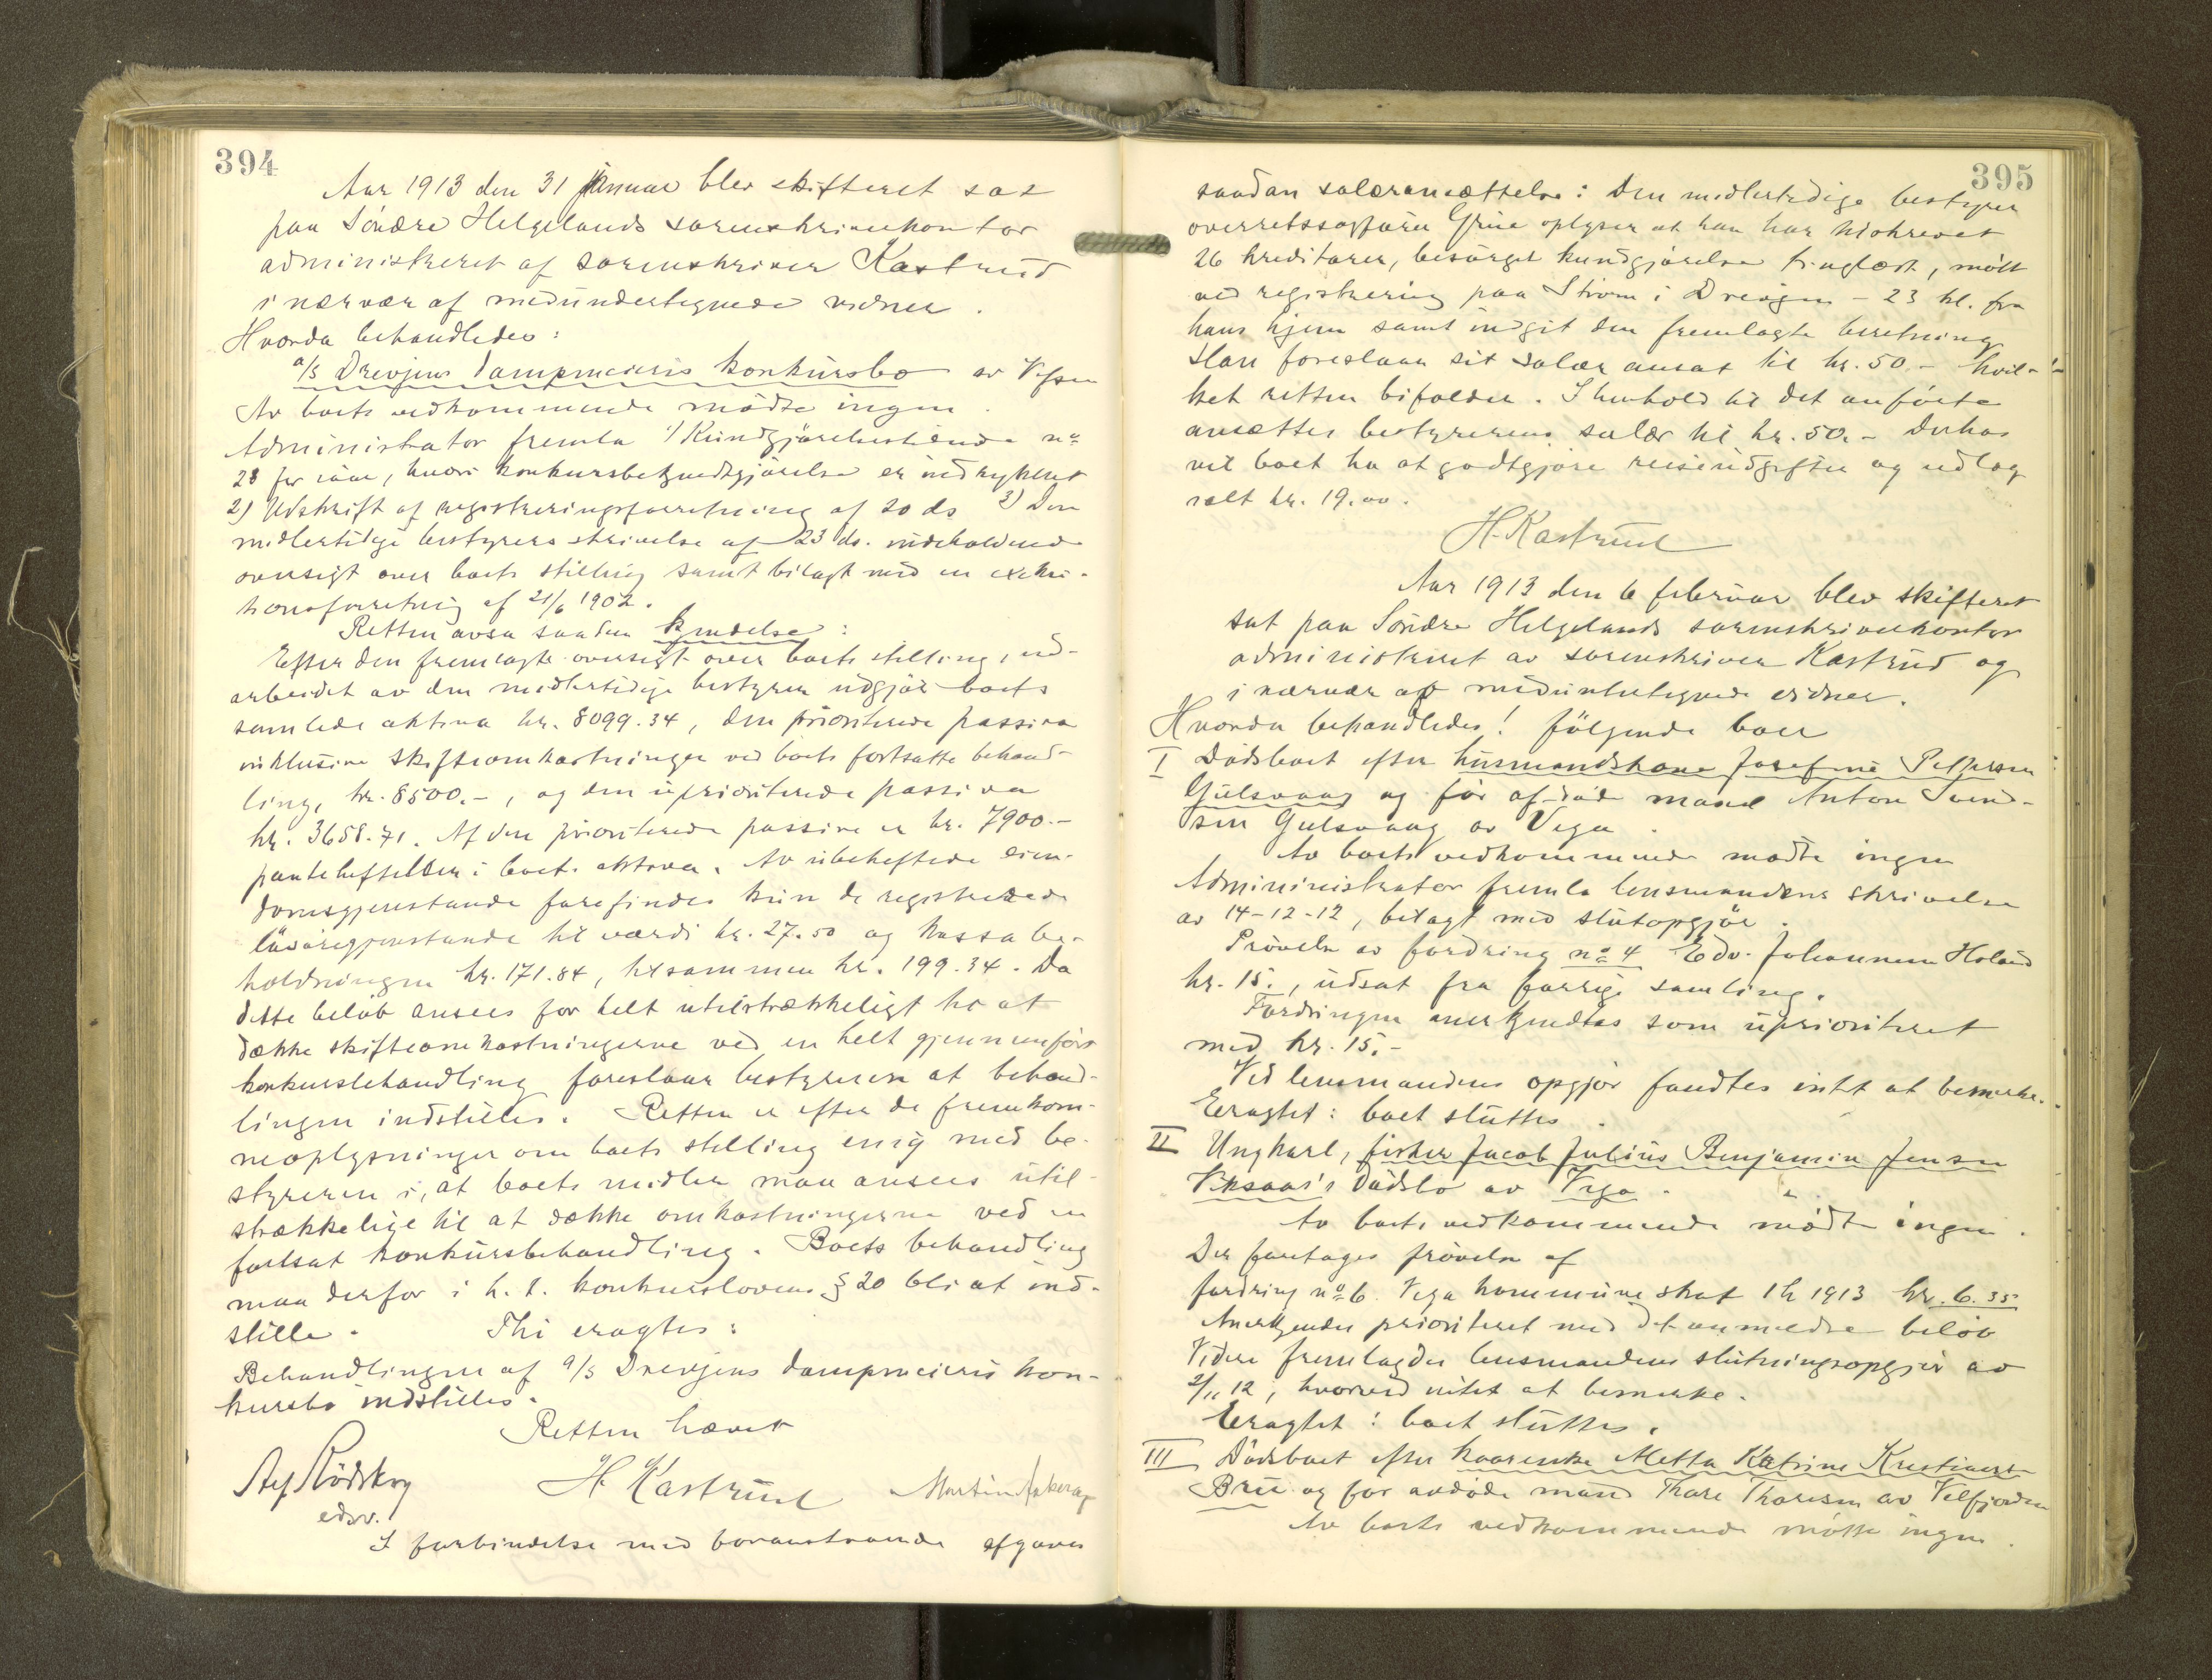 394
Aar 1913 den 31 januar blev skifteret sat
paa Söndre Helgelands sorenskriverkontor
administreret af sorenskriver Kastrud
i nærvær af medundertegnede vidner.
Hvorda behandledes:
a/s Drevjens dampmeieris konkursbo av Vefsen
Av boets vedkommende mödte ingen.
Administrator fremla 1/ Kundgjörelsestidende no
23 for iaar, hvori konkursbekjendtgjörelse er indrykket
2) Udskrift af registreringsforretning af 20 ds 3) Den
midlertidige bestyrers skrivelse af 23 ds. indeholdende
oversigt over boets stilling samt bilagt med en exeku-
tionsforretning af 21/6 1902.
Retten avsa saadan kjendelse:
Efter den fremlagte oversigt over boets stilling, ud-
arbeidet av den midlertidige bestyrer udgjör boets
samlede aktiva kr. 8099.34, den prioriterede passiva
inklusive skifteomkostninger ved boets fortsatte behand-
ling, kr. 8500.-, og den uprioriterede passiva
kr. 3658.71. Af den prioriterede passiva er kr. 7900.-
panteheftelser i boets aktiva. Av ubeheftede eien-
domsgjenstande forefindes kun de registrerede
lösöregjenstande til værdi kr. 27.50 og kassabe-
holdningen kr. 171.84, tilsammen kr. 199.34. Da
dette belöb ansees for helt utilstrækkeligt til at
dække skifteomkostningerne ved en helt gjennemfört
konkursbehandling foreslaar bestyreren at behand-
lingen indstilles. Retten er efter de fremkom-
neoplysninger om boets stilling enig med be-
styreren i, at boets midler maa ansees util-
strækkelige til at dække omkostningerne ved en
fortsat konkursbehandling. Boets behandling
maa derfor i h. t. konkurslovens § 20 bli at ind-
stille. Thi eragtes:
Behandlingen af a/s Drevjens dampmeieris kon-
kursbo indstilles.
Retten hævet
H Kastrud Martin
edsv.
I forbindelse med foranstaaende afgaves
395
saadan salæransættelse: Den midlertidige bestyrer
overretssagförer Grüe oplyser at han har tilskrevet
26 kreditorer, besörget kundgjörelse tinglæst, mött
ved registrering paa Strøm i Drevjen - 23 kl. fra
hans hjem samt indgit den fremlagte beretning
Han foreslaar sit salær ansat til kr. 50.- hvil-
ket retten bifalder. I henhold til det anförte
ansættes bestyrerens salær til kr. 50.- Derhos
vil boet ha at godtgjöre reiseudgifter og udlag
ialt kr. 19.00.
H. Kastrud
Aar 1913 den 6 februar blev skifteret
sat paa Söndre Helgelands sorenskriverkontor
administreret av sorenskriver Kastrud og
i nærvær af medundertegnede vidner.
Hvorda behandledes! fölgende boer
I Dödsboet efter husmandskone Josefine Pettersen
Gulsvaag og för afdöde mand Anton Svend-
sen Gulsvaag av Vega.
Av boets vedkommende mödte ingen
Admininistrator fremla lensmandens skrivelse
av 14-12-12, bilagt med slutopgjör.
Prövelse av fordring no 4 Edv. Johannesen Holand
kr. 15., udsat fra forrige samling.
Fordringen anerkjendtes som uprioriteret
med kr. 15.-
Ved lensmandens opgjör fandtes intet at bemerke.
Eragtet: boet sluttes.
II Ungkarl, fisker Jacob Julius Benjamin Jensen
Viksaas's dödsbo av Vega.
Av boets vedkommende mödte ingen.
Der foretages prövelse af
fordring no 6. Vega kommune skat 1 h 1913 kr. 6.35
Anerkjendes prioriteret med det anmeldte belöb
Videre fremlagdes lensmandens slutningsopgjör av
2/11 12, hvorved intet at bemerke.
Eragtet: boet sluttes.
III Dödsboet efter kaarenke Metta Katrine Kristiansd
Brue og för avdöde mand Thore Thoresen av Velfjorden
Av boets vedkommende mötte ingen.